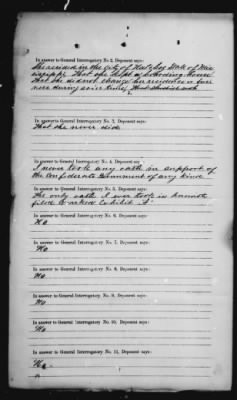 In answer to General Interrogatory No. 2, Deponent says:
She resided in the City of State of Miss
issippi. That she kept a boarding house
That she did not change her residence in fact
were during said time,
In answer to General Interrogatory No. 3, Deponent says:
That she never did.
In answer to General Interrogatory No. 4, Deponent says:
I never took any oath in support of
the Confederate Government of any kind
In answer to General Interrogatory No. 5, Deponent says:
The only oath I ever took is hereunto
filed marked Exhibit
In answer to General Interrogatory No. 6, Deponent says:
No
In answer to General Interrogatory No. 7, Deponent says:
No
In answer to General Interrogatory No. 8, Deponent says:
No
In answer to General Interrogatory No. 9, Deponent says:
No
In answer to General Interrogatory No. 10, Deponent says:
No
In answer to General Interrogatory No. 11, Deponent says:
No